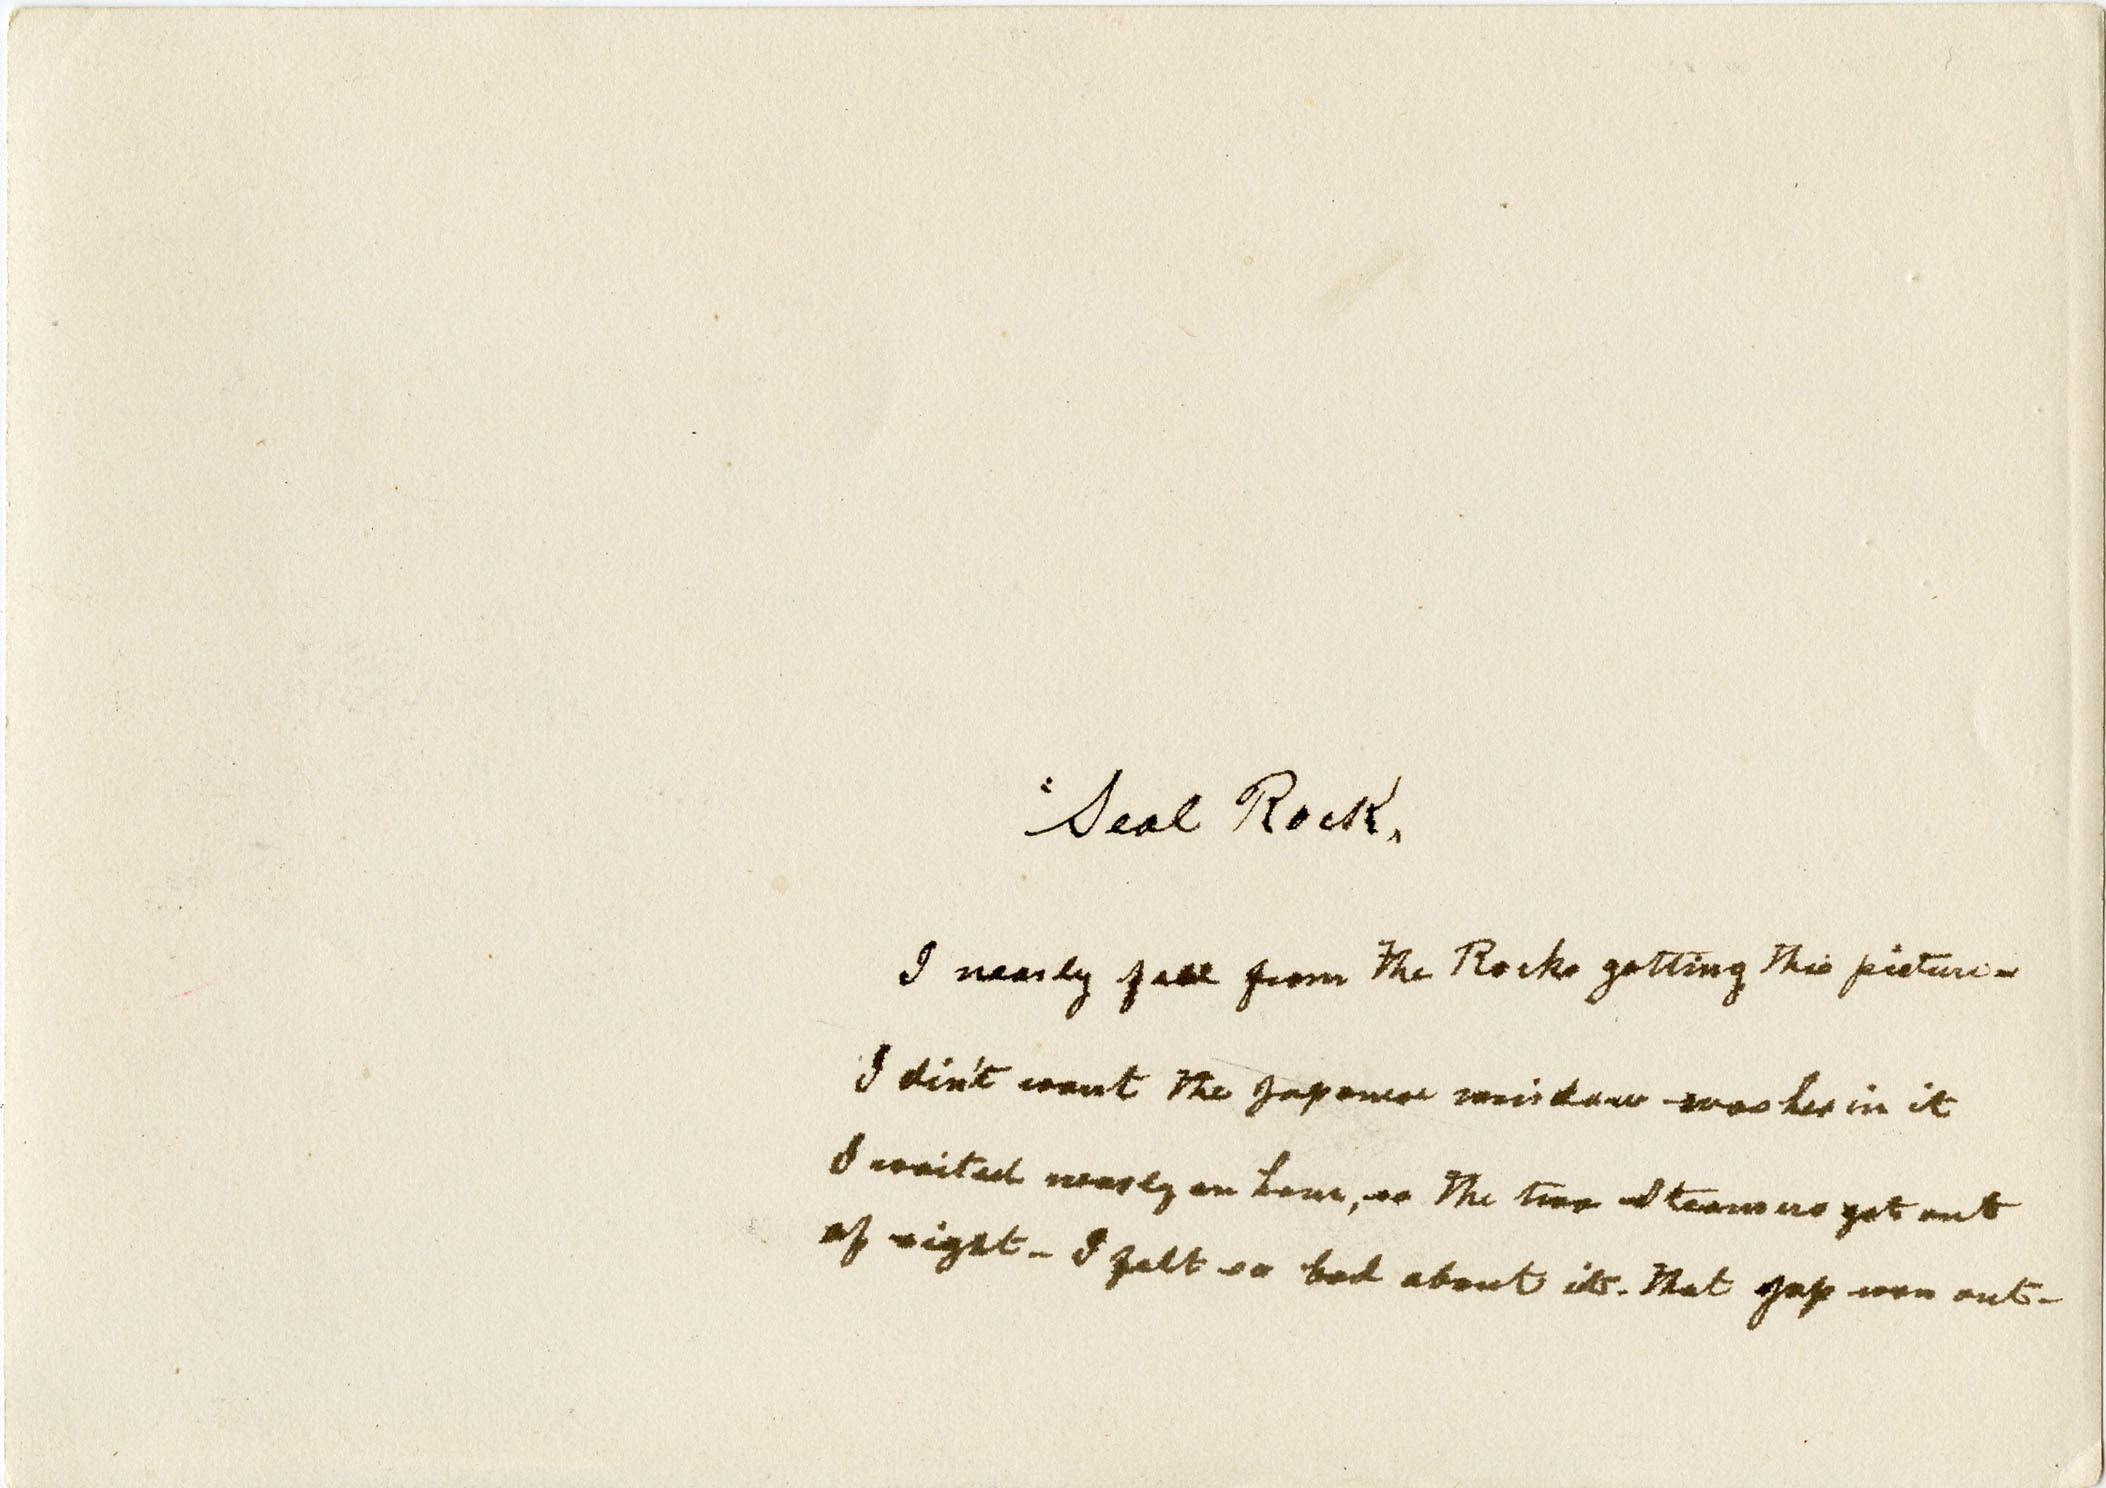 "Seal Rock.
I nearly fell from the Rocks getting this picture -
I din't want the Japanese window washer in it
I waited nearly an hour, so the two Steamers got out
of sight - I felt so bad about it. That Jap won out -